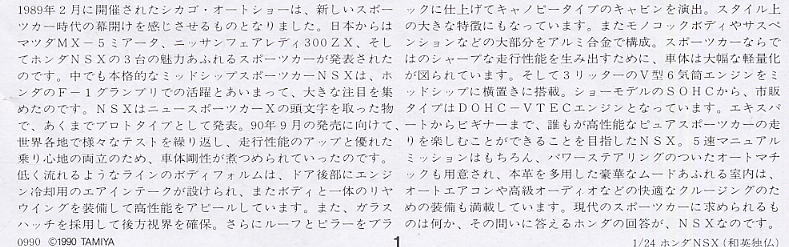 1989年2月に開催されたシカゴ・オートショーは、新しいスポー
ツカー時代の幕開けを感じさせるものとなりました。日本からは
マツダMX－5ミアータ、ニッサンフェアレディ300ZX、そし
てホンダNSXの3台の魅力あふれるスポーツカーが発表された
のです。中でも本格的なミッドシップスポーツカーNSXは、ホ
ンダのF－1グランプリでの活躍とあいまって、大きな注目を集
めたのです。NSXはニュースポーツカーXの頭文字を取った物
で、あくまでプロトタイプとして発表。90年9月の発売に向けて、
世界各地で様々なテストを繰り返し、走行性能のアップと優れた
乗り心地の両立のため、車体剛性が煮つめられていったのです。
低く流れるようなラインのボディフォルムは、ドア後部にエンジ
ン冷却用のエアインテークが設けられ、またボディと一体のリヤ
ウイングを装備して高性能をアピールしています。また、ガラス
ハッチを採用して後方視界を確保。さらにルーフとピラーをブラ
ックに仕上げてキャノピータイプのキャビンを演出。スタイル上
の大きな特徴にもなっています。またモノコックボディやサスペ
ンションなどの大部分をアルミ合金で構成。スポーツカーならで
はのシャープな走行性能を生み出すために、車体は大幅な軽量化
が図られています。そして3リッターのV型6気筒エンジンをミ
ッドシップに横置きに搭載。ショーモデルのSOHCから、市販
タイプはDOHC－VTECエンジンとなっています。エキスパ
ートからビギナーまで、誰もが高性能なピュアスポーツカーの走
りを楽しむことができることを目指したNSX。5速マニュアル
ミッションはもちろん、パワーステアリングのついたオートマチ
ックも用意され、本革を多用した豪華なムードあふれる室内は、
オートエアコンや高級オーディオなどの快適なクルージングのた
めの装備も満載しています。現代のスポーツカーに求められるも
のは何か、その問いに答えるホンダの回答が、NSXなのです。
0990 ©1990 TAMIYA
1
1/24 ホンダNSX (和英独仏)